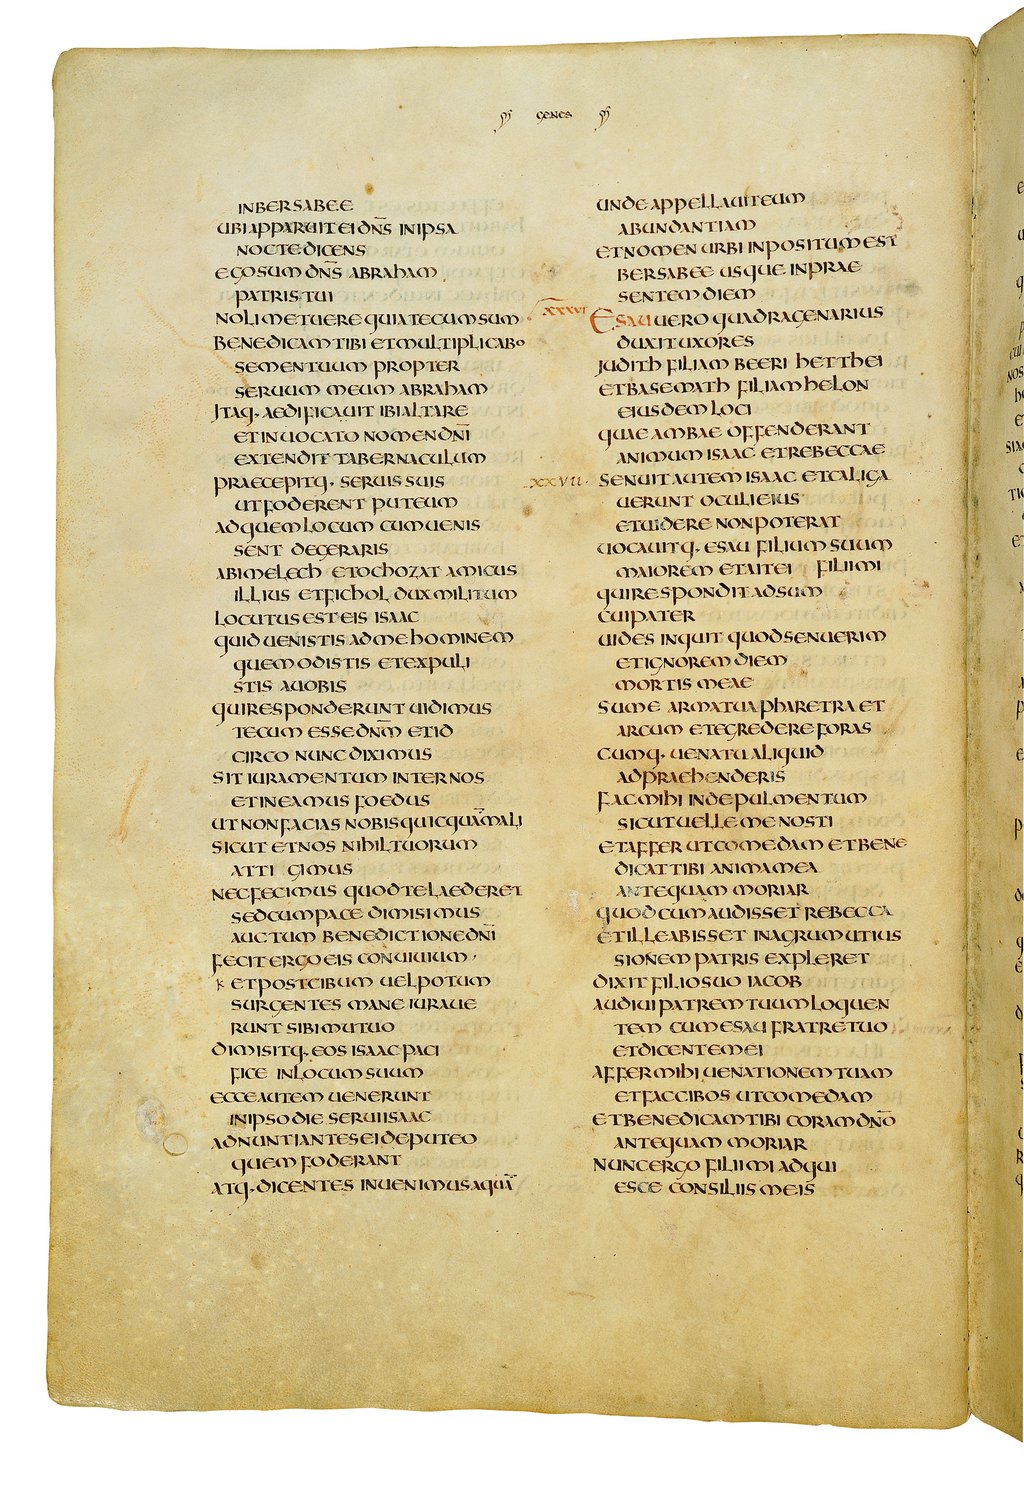 GENES
INBERSABEE
UBIAPPARUITEI DN̅S INIPSA
NOCTEDICENS
EGOSUM DN̅S ABRAHAM
PATRISTUI
NOLIMETUEREQUIATECUMSUM
BENEDICAMTIBI ETMULTIPLICABO
SEMENTUUM PROPTER
SERUUM MEUM ABRAHAM
ITAQ· AEDIFICAUIT IBIALTARE
ETINUOCATO NOMENDN̅I
EXTENDIT TABERNACULUM
PRAECEPITQ· SERUISSUIS
UTFODERENT PUTEUM
ADQUEMLOCUM CUMUENIS
SENT DEGERARIS
ABIMELECH ETOCHOZAT AMICUS
ILLIUS ETFICHOL DUXMILITUM
LOCUTUSESTEIS ISAAC
QUIDUENISTIS ADMEHOMINEM
QUEMODISTIS ETEXPULI
STIS AUOBIS
QUIRESPONDERUNT UIDIMUS
TECUM ESSEDN̅M ETID
CIRCO NUNCDIXIMUS
SIT IURAMENTUM INTERNOS
ETINEAMUS FOEDUS
UTNONFACIAS NOBISQUICQUA̅MALI
SICUT ETNOS NIHILTUORUM
ATTI GIMUS
NECFECIMUS QUODTELAEDERET
SEDCUMPACE DIMISIMUS
AUCTUM BENEDICTIONEDN̅I
FECITERGOEIS CONUIUIUM
ETPOSTCIBUM UELPOTUM
SURGENTES MANE IURAUE
RUNT SIBIMUTUO
DIMISITQ· EOS ISAACPACI
FICE INLOCUMSUUM
ECCEAUTEM UENERUNT
INIPSODIE SERUIISAAC
ADNUNTIANTESEIDEPUTEO
QUEMFODERANT
ATQ· DICENTES INUENIMUSAQUA̅
UNDEAPPELLAUITEUM
ABUNDANTIAM
ETNOMENURBI INPOSITUMEST
BERSABEE USQUE INPRAE
SENTEMDIEM
XXXVI ESAUUERO QUADRAGENARIUS
DUXITUXORES
IUDITH FILIAM BEERI HETTHEI
ETBASEMATH FILIAMHELON
EIUSDEMLOCI
QUAEAMBAE OFFENDERANT
ANIMUMISAAC ETREBECCAE
XXVII· SENUITAUTEMISAAC ETCALIGA
UERUNT OCULIEIUS
ETUIDERE NONPOTERAT
UOCAUITQ· ESAU FILIUMSUUM
MAIOREM ETAITEI FILIIMI
QUIRESPONDITADSUM
CUIPATER
UIDES INQUIT QUODSENUERIM
ETIGNOREMDIEM
MORTIS MEAE
SUME ARMATUAPHARETRA ET
ARCUM ETEGREDEREFORAS
CUMQ· UENATUALIQUID
ADPRAEHENDERIS
FACMIHI INDEPULMENTUM
SICUTUELLEMENOSTI
ETAFFERUTCOMEDAM ETBENE
DICATTIBI ANIMAMEA
ANTEQUAM MORIAR
QUODCUMAUDISSET REBECCA
ETILLEABISSET INAGRUMUTIUS
SIONEMPATRIS EXPLERET
DIXIT FILIOSUO IACOB
AUDIUIPATREMTUUMLOQUEN
TEM CUMESAU FRATRETUO
ETDICENTEMEI
AFFERMIHIUENATIONEMTUAM
ETFACCIBOS UTCOMEDAM
ETBENEDICAMTIBI CORAMDN̅O
ANTEQUAM MORIAR
NUNCERGO FILIIMIADQUI
ESCE CONSILIISMEIS